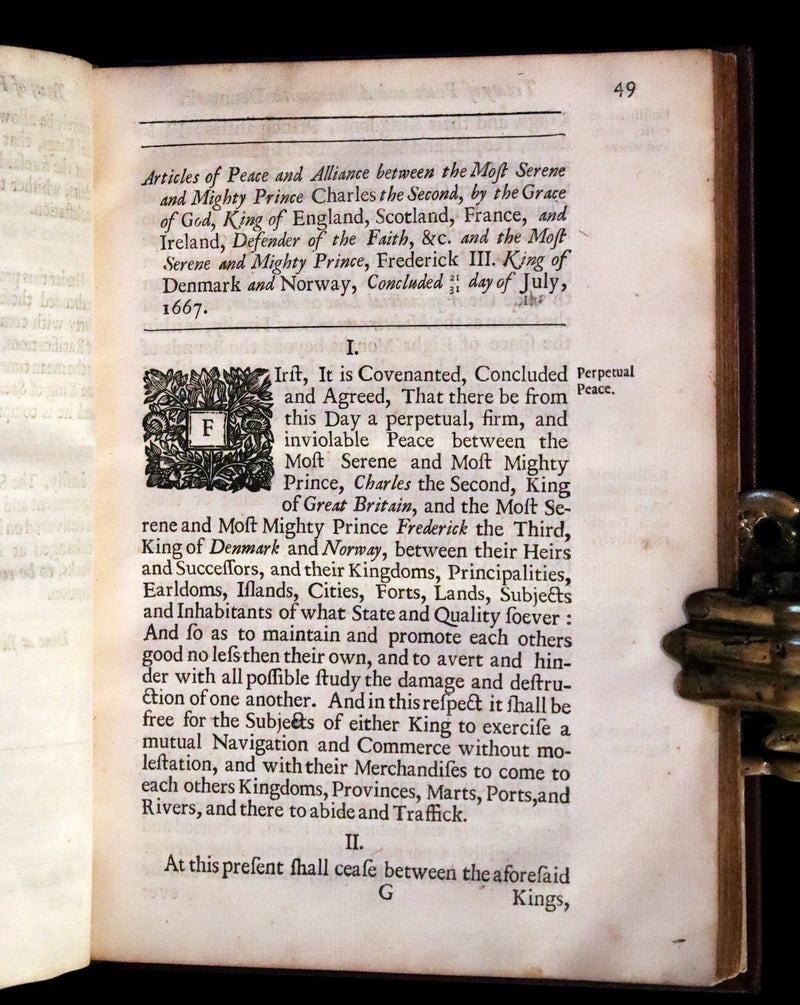 49
Articles of Peace and Alliance between the Moſt Serene
and Mighty Prince Charles the Second, by the Grace
of God, King of England, Scotland, France, and
Ireland, Defender of the Faith, &c. and the Moſt
Serene and Mighty Prince, Frederick III. King of
Denmark and Norway, Concluded 21/31 day of July,
1667.
I.
FIrſt, It is Covenanted, Concluded
and Agreed, That there be from
this Day a perpetual, firm, and
inviolable Peace between the
Moſt Serene and Moſt Mighty
Prince, Charles the Second, King
of Great Britain, and the Moſt Se-
rene and Moſt Mighty Prince Frederick the Third,
King of Denmark and Norway, between their Heirs
and Succeſſors, and their Kingdoms, Principalities,
Earldoms, Iſlands, Cities, Forts, Lands, Subjects
and Inhabitants of what State and Quality ſoever :
And ſo as to maintain and promote each others
good no leſs then their own, and to avert and hin-
der with all poſſible ſtudy the damage and deſtru-
ction of one another. And in this reſpect it ſhall be
free for the Subjects of either King to exerciſe a
mutual Navigation and Commerce without mo-
leſtation, and with their Merchandiſes to come to
each others Kingdoms, Provinces, Marts, Ports, and
Rivers, and there to abide and Traffick.
Perpetual
Peace.
II.
At this preſent ſhall ceaſe between the aforeſaid
G
Kings,